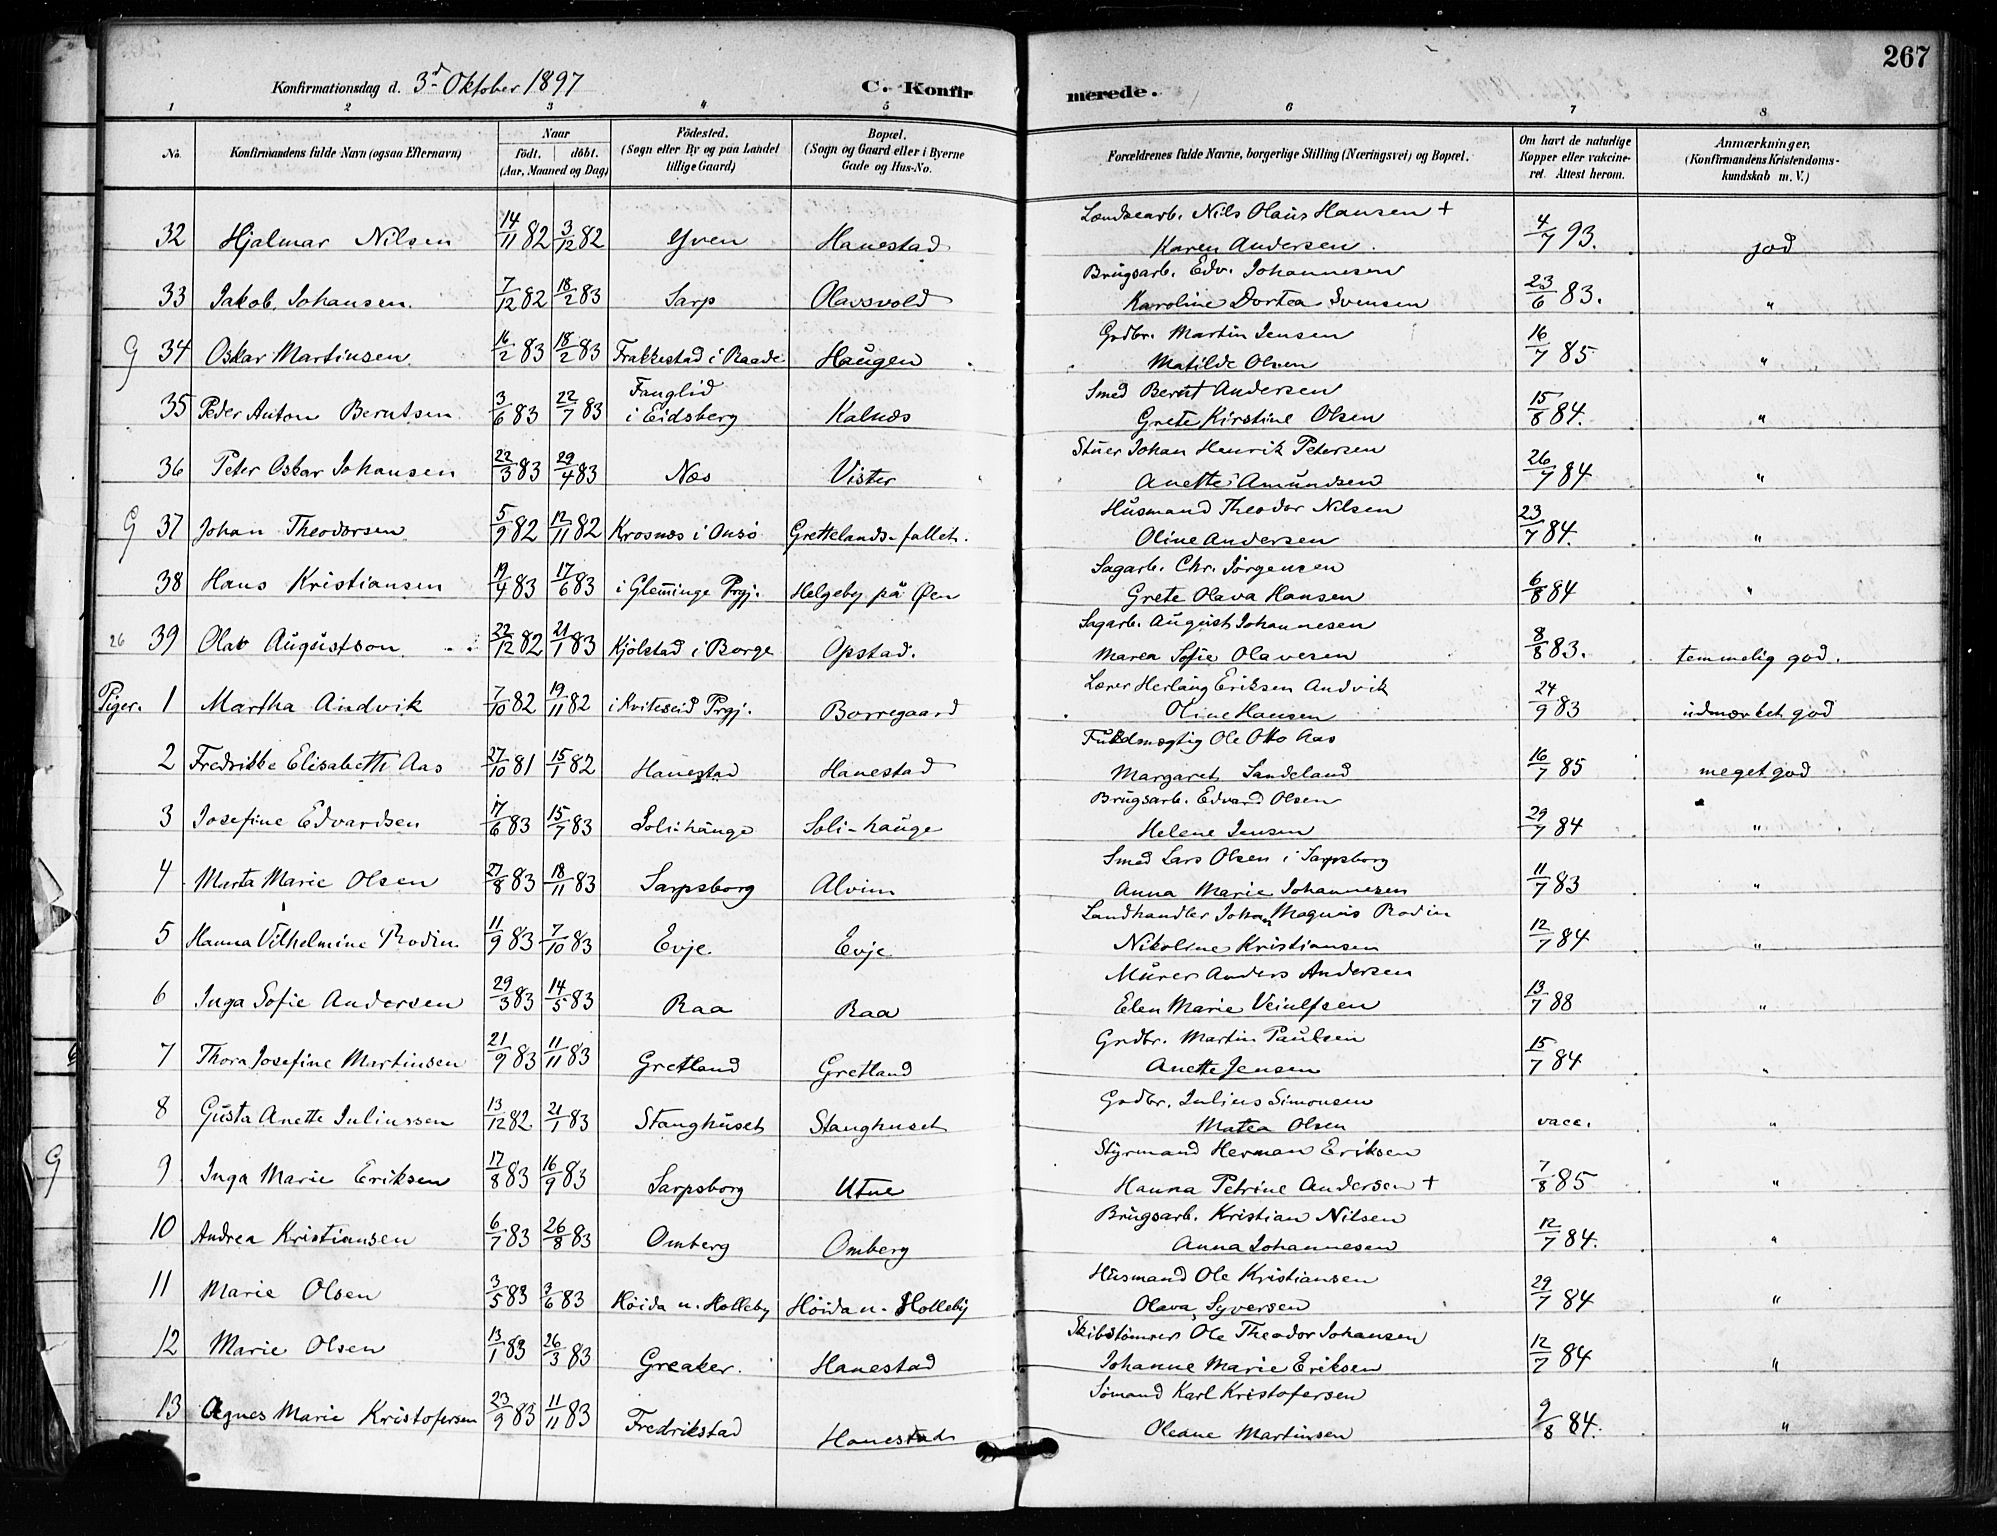 267
Konfirmationsdag d. 3d Oktober 1897
C. Konfirmerede.
1 2 3 4 5 6 7 8
No. Konfirmandens fulde Navn (ogsaa Efternavn) Naar født. døbt. (Aar, Maaned og Dag) Fødested. (Sogn eller By og paa Landet tillige Gaard) Bopæl. (Sogn og Gaard eller i Byerne Gade og Hus-No. Forældrenes fulde Navne, borgerlige Stilling (Næringsvei) og Bopæl. Om havt de naturlige Kopper eller vakcineret. Attest herom. Anmærkninger. (Konfirmandens Kristendomskundskab m. V.)
Lændsearb. Nils Olaus Hansen +
32 Hjalmar Nilsen 14/11 82 3/12 82 Yven Hanestad Karen Andersen. 4/7 93. god
Brugsarb. Edv. Johannesen
33 Jakob Johansen. 7/12 82 18/2 83 Sarp Olavsvold Karoline Dortea Svensen 23/6 83. "
Grdbr. Martin Jensen
G 34 Oskar Martinsen. 16/2 83 18/2 83 Frakkestad i Raade Haugen Matilde Olsen 16/7 85 "
Smed Bernt Andersen
35 Peder Anton Berntsen 3/6 83 22/7 83 Fanglid i Eidsberg Kalnæs Grete Kirstine Olsen 15/8 84. "
Stuer Johan Henrik Petersen
36 Peter Oskar Johansen 22/3 83 29/4 83 Næs Vister Anette Amundsen 26/7 84 "
Husmand Theodor Nilsen
G 37 Johan Theodorsen 5/9 82 12/11 82 Krosnæs i Onsø Grettelands-fallet. Oline Andersen 23/7 84. "
Sagarb. Chr. Jörgensen
38 Hans Kristiansen 19/4 83 17/6 83 i Glemminge Prgj. Helgeby på Øen Grete Olava Hansen 6/8 84 "
Sagarb. August Johannesen
26 39 Olav Augustson 22/12 82 21/1 83 Kjölstad i Borge Opstad. Maren Sofie Olavesen 8/8 83. temmelig god.
Lærer Herlaug Eriksen Andvik
Piger. 1 Martha Andvik 7/10 82 19/11 82 i Kviteseid Prgj. Borregaard Oline Hansen 24/9 83 udmærket god
Fuldmægtig Ole Otto Aas
2 Fredrikke Elisabeth Aas 27/10 81 15/1 82 Hanestad Hanestad Margaret Sandeland 16/7 85 meget god
Brugsarb. Edvard Olsen
3 Josefine Edvardsen 17/6 83 15/7 83 Soli-hauge Soli-hauge Helene Jensen 29/7 84 "
Smed Lars Olsen i Sarpsborg
4 Marta Marie Olsen 27/8 83 18/11 83 Sarpsborg Alvim Anna Marie Johannesen 11/7 83 "
Landhandler Johan Magnus Rodin
5 Hanna Vilhelmine Rodin 11/9 83 7/10 83 Evje. Evje Nikoline Kristiansen 12/7 84 "
Murer Anders Andersen
6 Inga Sofie Andersen 29/3 83 14/5 83 Raa Raa Elen Marie Veiulfsen 13/7 88 "
Grdbr. Martin Paulsen
7 Thora Josefine Martinsen 21/9 83 11/11 83 Gretland Gretland Anette Jensen 15/7 84 "
Grdbr. Julius Simonsen
8 Gusta Anette Juliussen 13/12 82 21/1 83 Stanghuset Stanghuset Matea Olsen vacc. "
Styrmand Herman Eriksen
9 Inga Marie Eriksen 17/8 83 16/9 83 Sarpsborg Utne Hanna Petrine Andersen + 7/8 85 "
Brugsarb. Kristian Nilsen
10 Andrea Kristiansen 6/7 83 26/8 83 Omberg Omberg Anna Johannesen 12/7 84. "
Husmand Ole Kristiansen
11 Marie Olsen 3/5 83 3/6 83 Höida u. Holleby Höida u. Holleby Olava Syversen 29/7 84 "
Skibstömrer Ole Theodor Johansen
12 Marie Olsen 13/1 83 26/3 83 Greaker. Hanestad Johanne Marie Eriksen 12/7 84 "
Sömand Karl Kristofersen
13 Agnes Marie Kristofersen 23/9 83 11/11 83 Fredrikstad Hanestad Oleane Martinsen 9/8 84. "
G